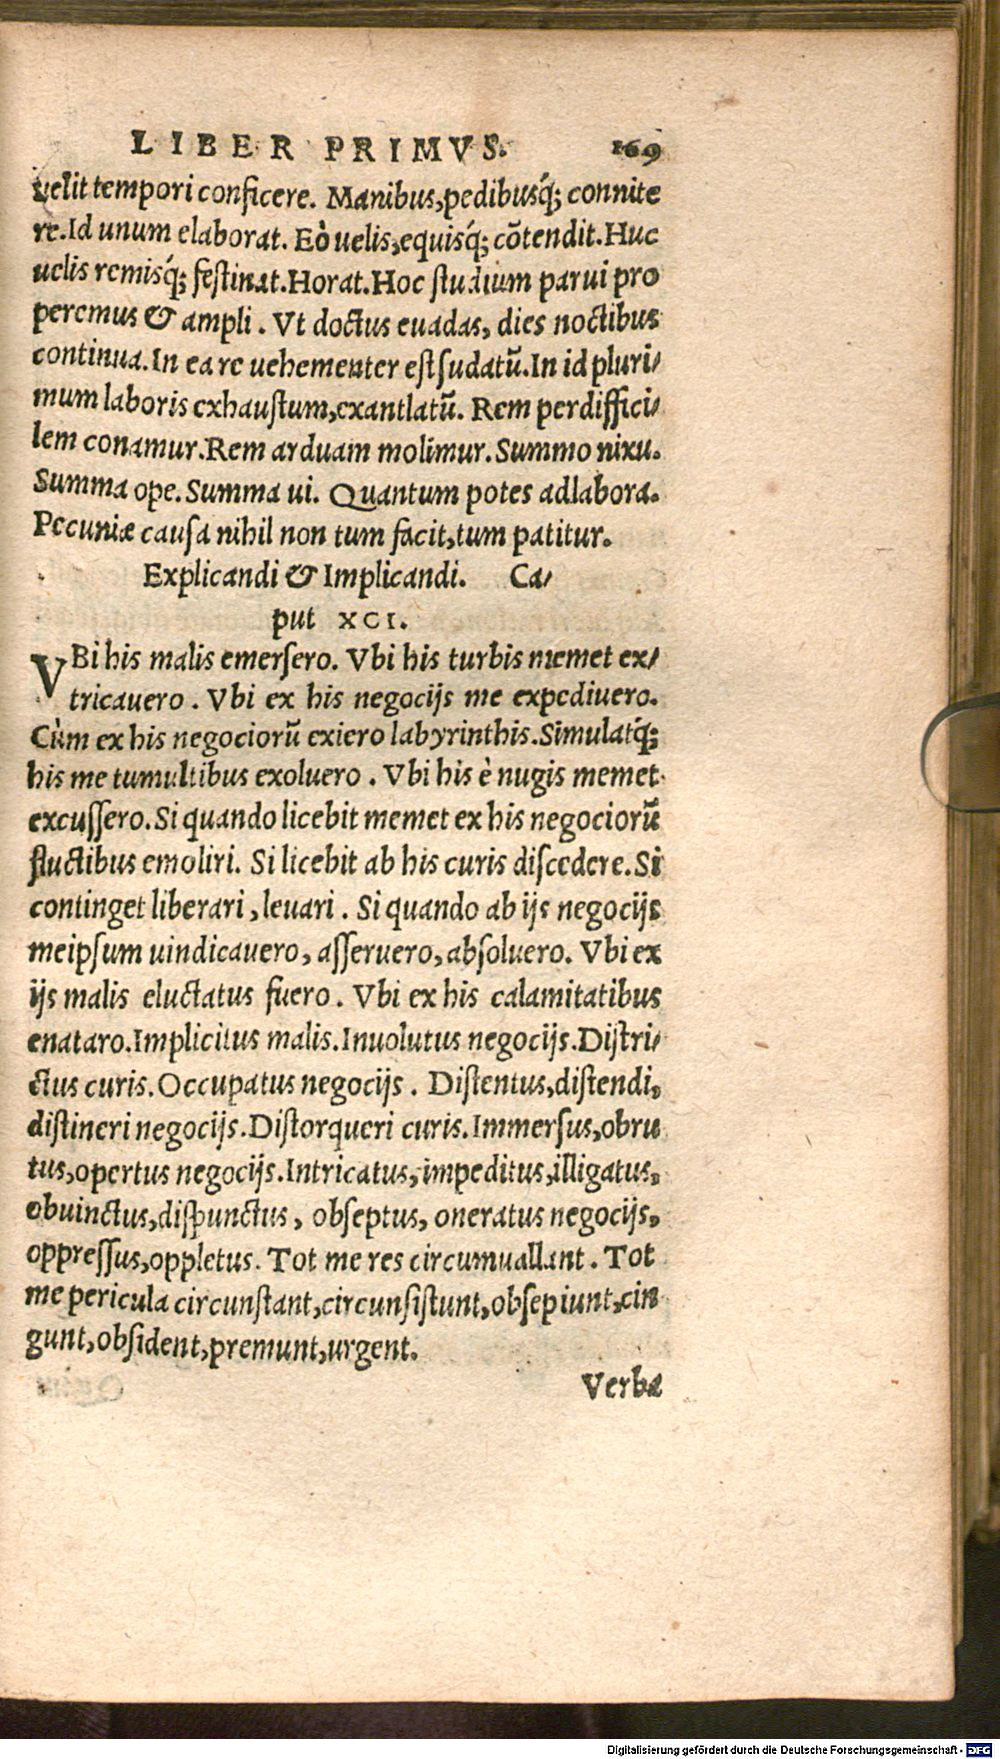 LIBER PRIMVS. 169
uelit tempori conficere. Manibus, pedibusq́; connite
re. Id unum elaborat. Eò uelis, equisq́; cōtendit. Huc
uelis remisq́; festinat. Horat. Hoc studium parui pro
peremus & ampli. Vt doctus euadas, dies noctibus
continua. In ea re uehementer est sudatū. In id pluri/
mum laboris exhaustum, exantlatū. Rem perdiffici/
lem conamur. Rem arduam molimur. Summo nixu.
Summa ope. Summa ui. Quantum potes adlabora.
Pecuniæ causa nihil non tum facit, tum patitur.
Explicandi & Implicandi. Ca/
put XCI.
VBi his malis emersero. Vbi his turbis memet ex/
tricauero. Vbi ex his negocijs me expediuero.
Cùm ex his negociorū exiero labyrinthis. Simulatq́;
his me tumultibus exoluero. Vbi his è nugis memet
excussero. Si quando licebit memet ex his negociorū
fluctibus emoliri. Si licebit ab his curis discedere. Si
continget liberari, leuari. Si quando ab ijs negocijs
meipsum uindicauero, asseruero, absoluero. Vbi ex
ijs malis eluctatus fuero. Vbi ex his calamitatibus
enataro. Implicitus malis. Inuolutus negocijs. Distri/
ctus curis. Occupatus negocijs. Distentus, distendi,
distineri negocijs. Distorqueri curis. Immersus, obru
tus, opertus negocijs. Intricatus, impeditus, illigatus,
obuinctus, dispunctus, obseptus, oneratus negocijs,
oppressus, oppletus. Tot me res circumuallant. Tot
me pericula circunstant, circunsistunt, obsepiunt, cin
gunt, obsident, premunt, urgent.
Verba
Digitalisierung gefördert durch die Deutsche Forschungsgemeinschaft - DFG